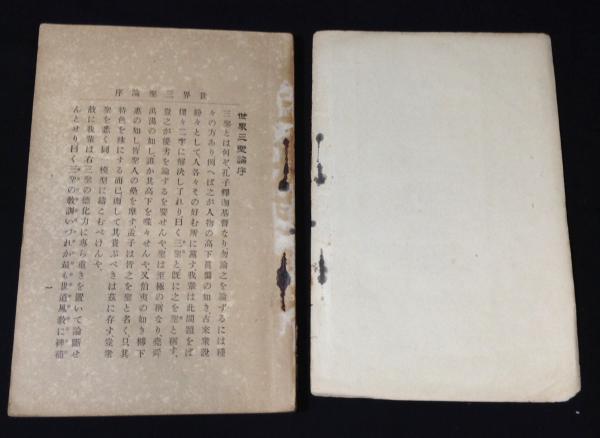 世界三聖論序
世界三聖論序
三聖とは何ぞ、孔子釋迦基督なり勿論之を論ずるには種
々の方あり例へば之が人物の高下眞僞の如き、古來衆說
紛々として人各々その好む所に黨す我輩は此問題をば
僅々二字に解決し了れり曰く三聖と既に之を聖と稱す、
豈之が優劣を論ずるを要せんや、聖は至極の稱なり、堯舜
禹湯の如し誰か其高下を喋々せんや、又伯夷の如き柳下
惠の如し皆聖人の
特色を殊にする而已而して其貴ぶべきは茲に存す豈衆
聖を悉く同一模型に鑄こむべけんや、
故に我輩は右三聖の德化力に專ら重きを置いて論斷せ
んとせり曰く三聖の敎訓いづれか最も世道風敎に裨補
一